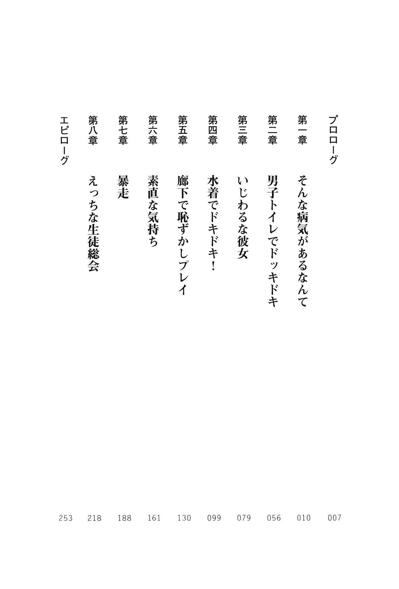 プロローグ 007
第一章 そんな病気があるなんて 010
第二章 男子トイレでドッキドキ 056
第三章 いじわるな彼女 079
第四章 水着でドキドキ！ 099
第五章 廊下で恥ずかしプレイ 130
第六章 素直な気持ち 161
第七章 暴走 188
第八章 えっちな生徒総会 218
エピローグ 253